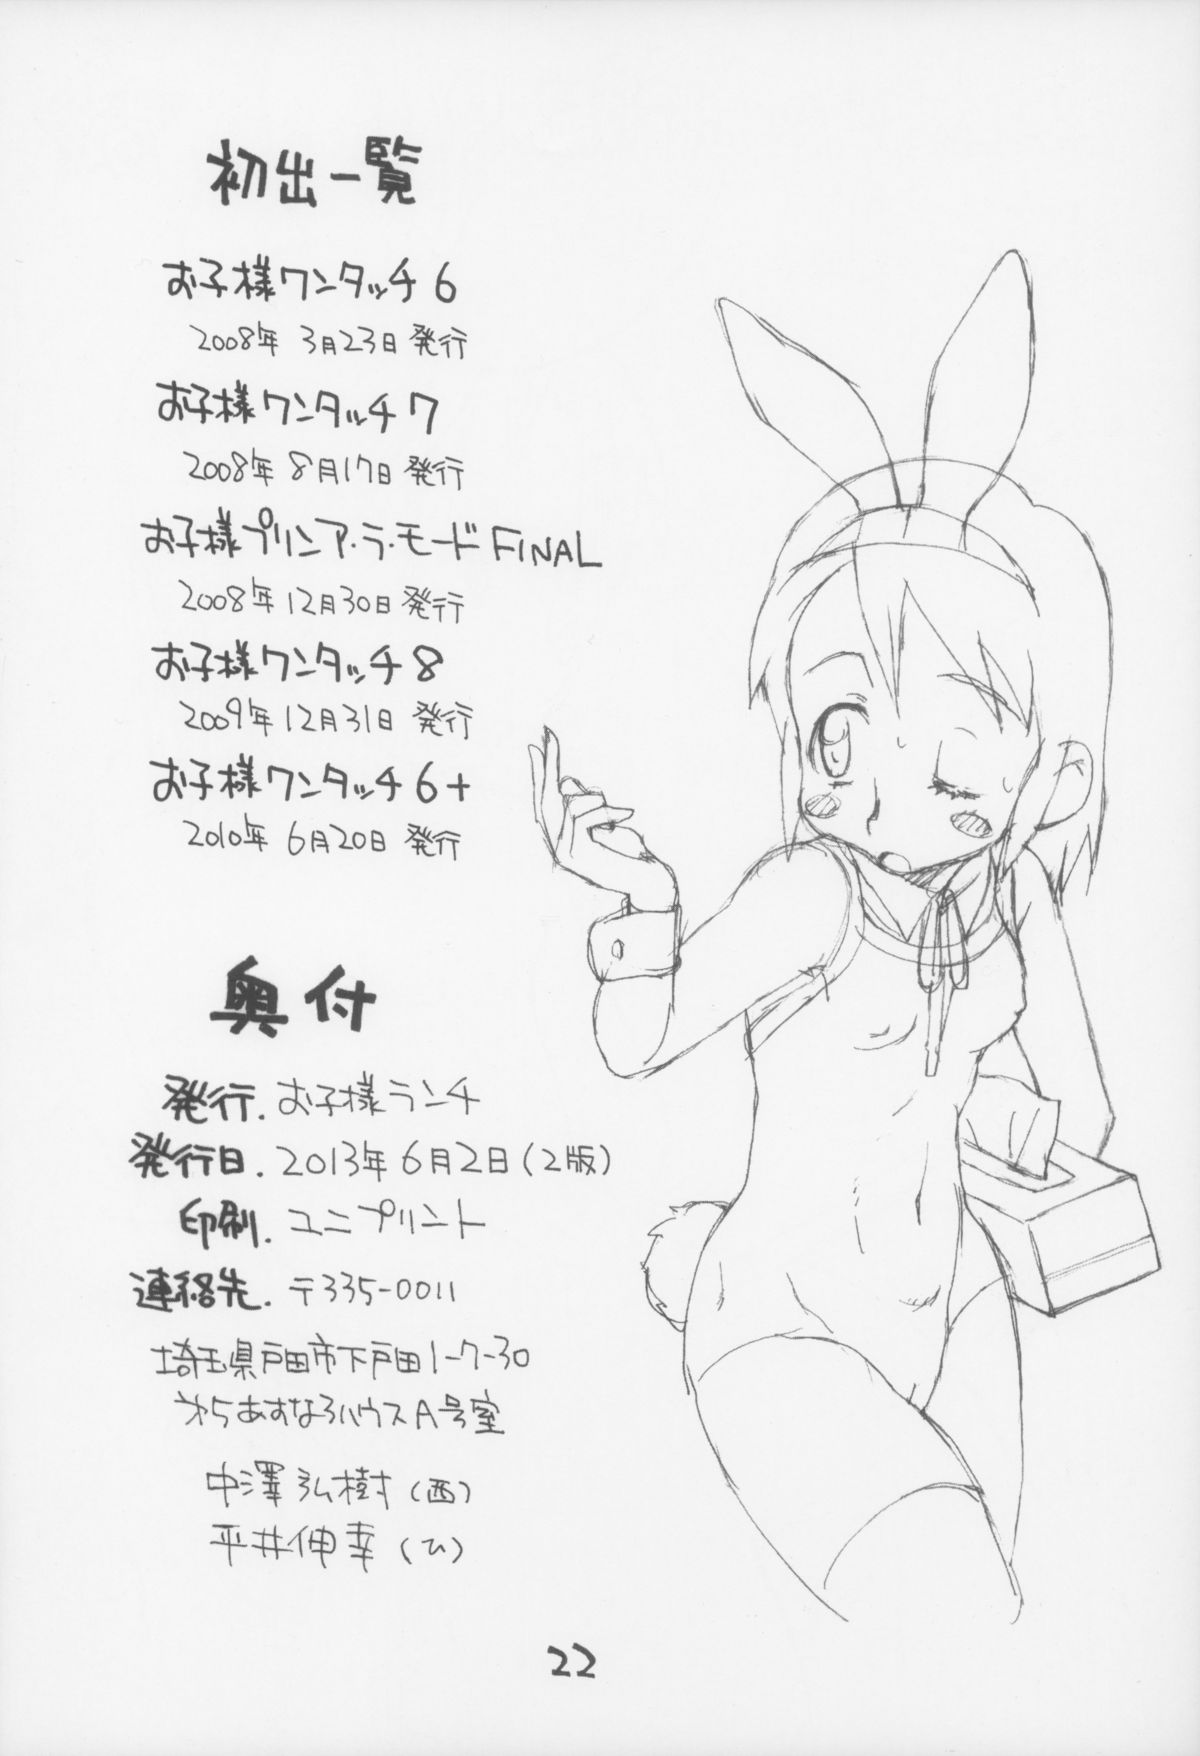 初出一覧
お子様ワンタッチ6
2008年 3月23日 発行
お子様ワンタッチ7
2008年 8月17日 発行
お子様プリンア・ラ・モードFINAL
2008年12月30日 発行
お子様ワンタッチ8
2009年12月31日 発行
お子様ワンタッチ6+
2010年 6月20日 発行
奥付
発行. お子様ランチ
発行日. 2013年6月2日(2版)
印刷. ユニプリント
連絡先. 〒335-0011
埼玉県戸田市下戸田1-7-30
あすなろハウスA号室
中澤弘樹(西)
平井伸幸(ひ)
22